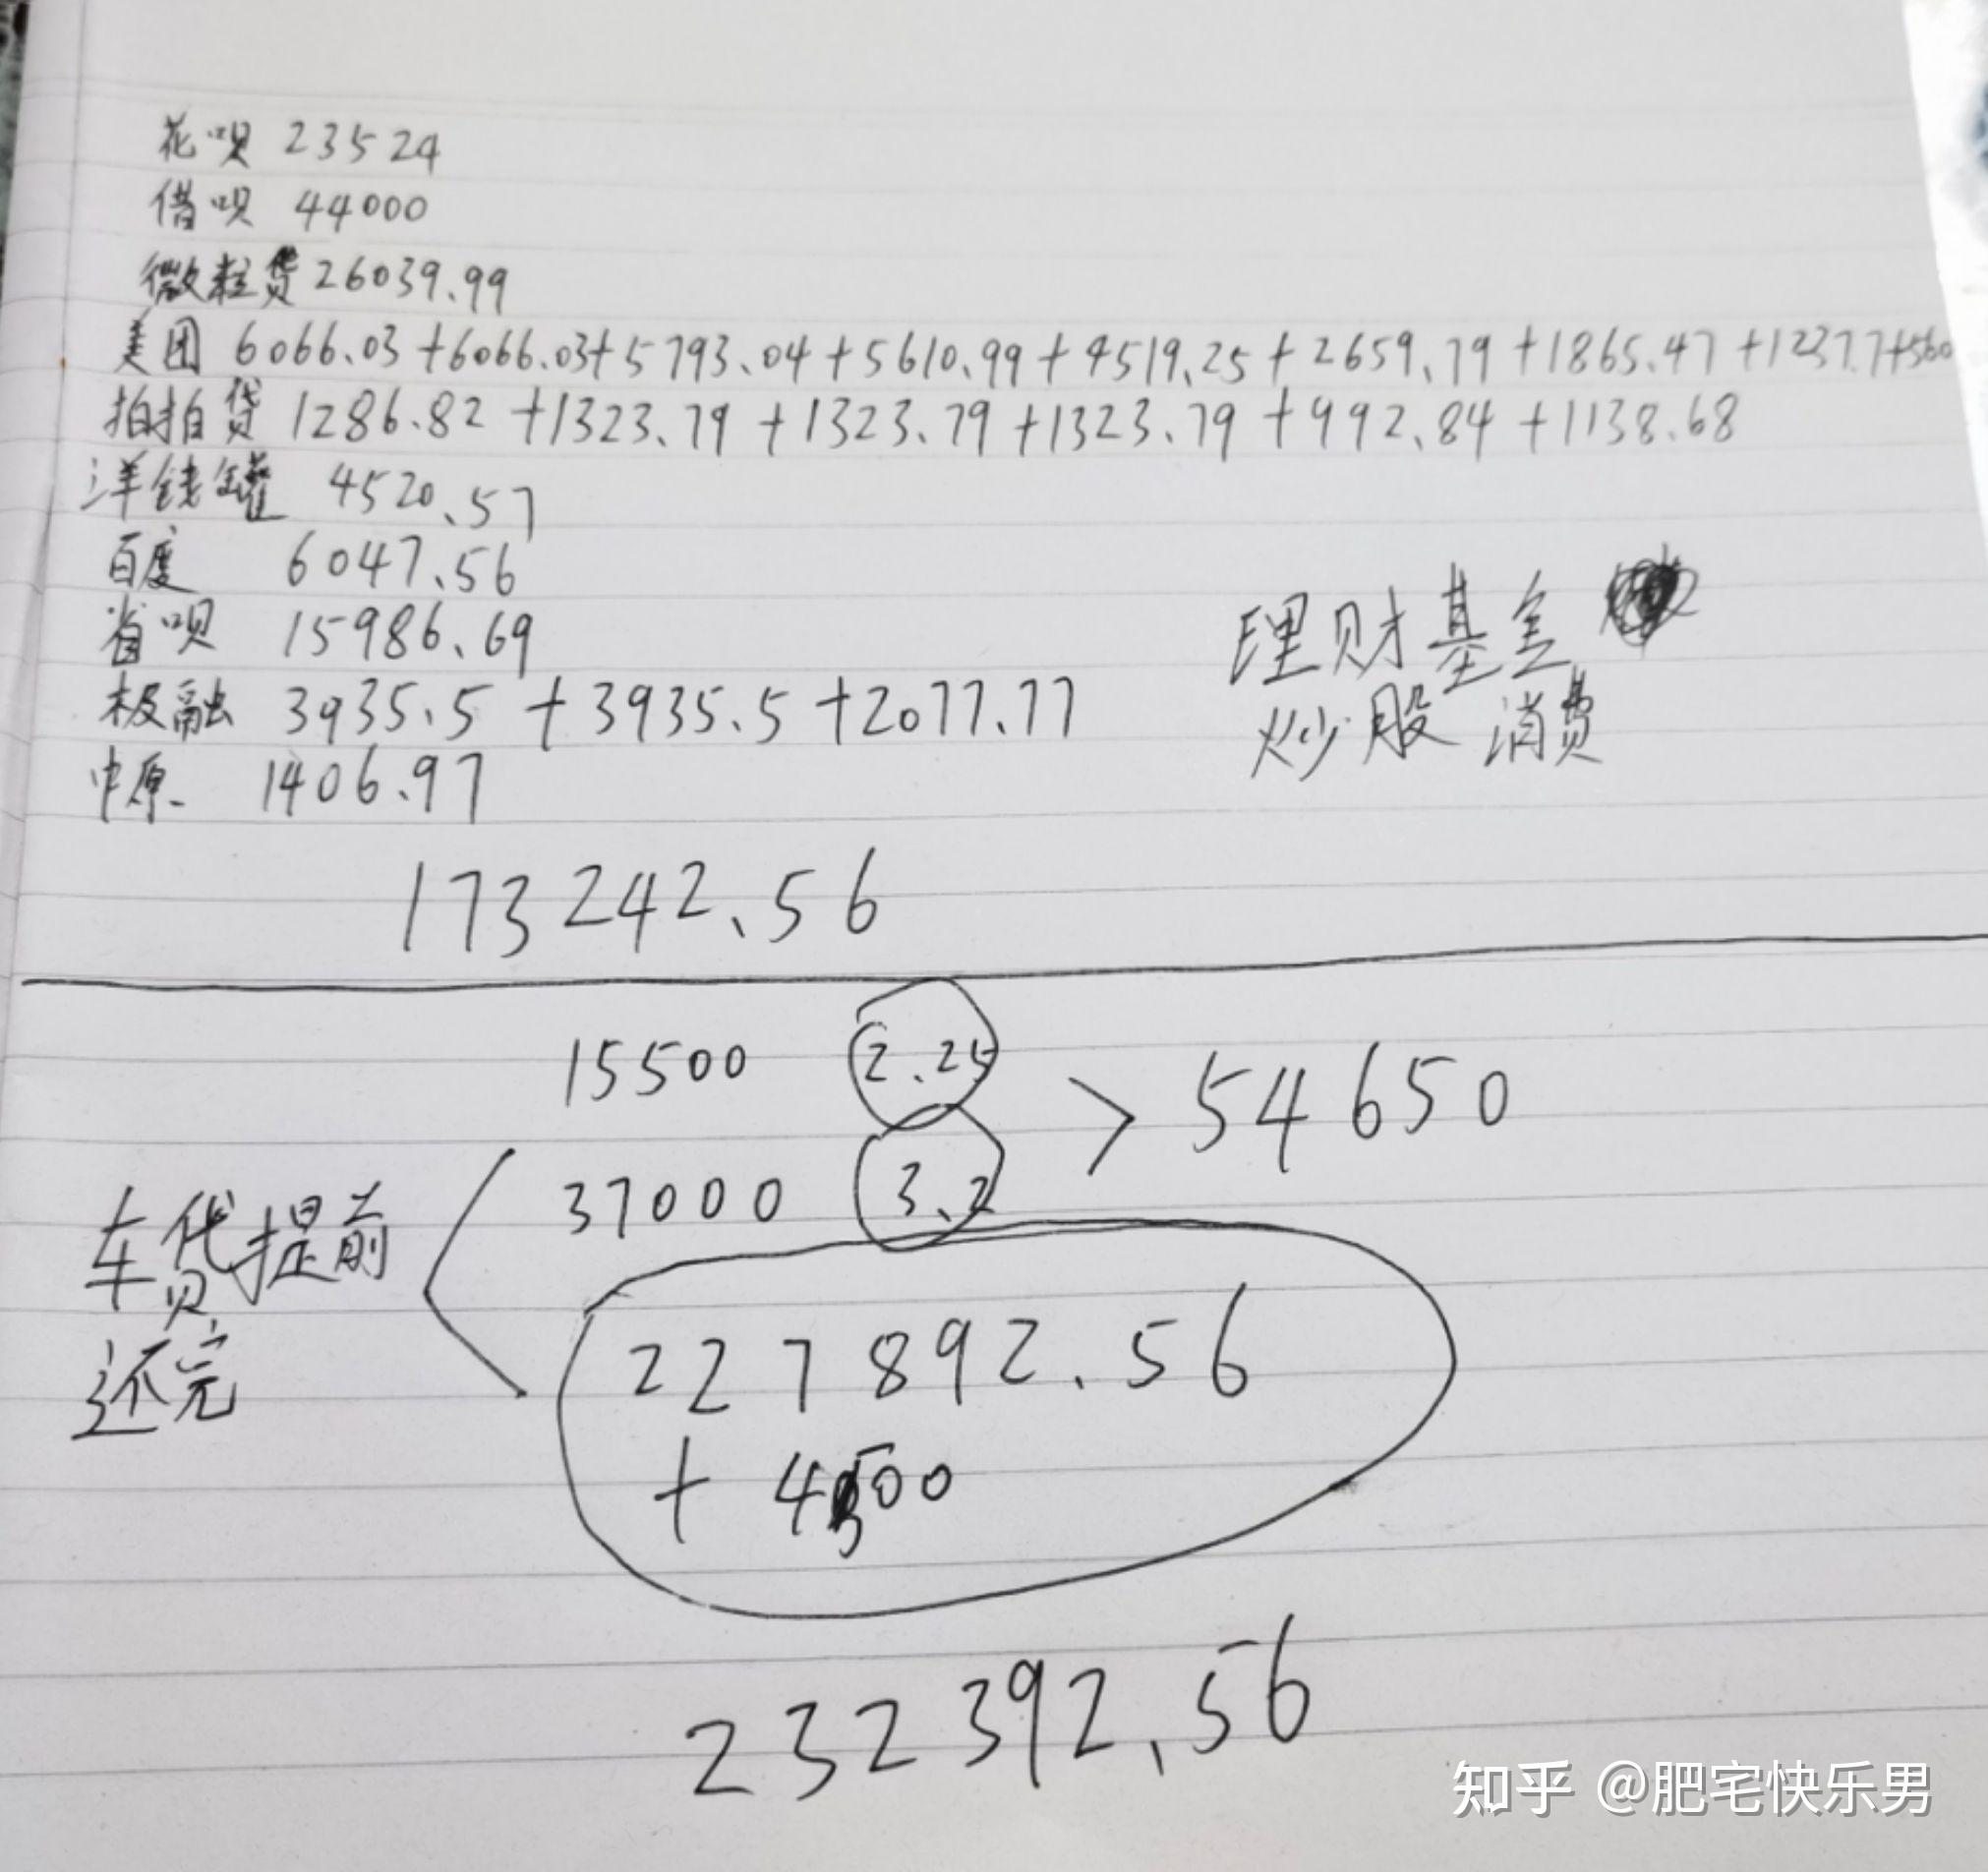 花呗 23524
借呗 44000
微粒贷 26039.99
美团 6066.03+6066.03+5793.04+5610.99+4519.25+2659.79+1865.47+1237.7+560
拍拍贷 1286.82+1323.79+1323.79+1323.79+992.84+1138.68
洋钱罐 4520.57
百度 6047.56
省呗 15986.69
极融 3935.5+3935.5+2077.77
中原 1406.97
理财基金
炒股 消费
173242.56
15500 2.25
37000 3.2
> 54650
车贷提前
还完
227892.56
+4500
232392.56
知乎 @肥宅快乐男